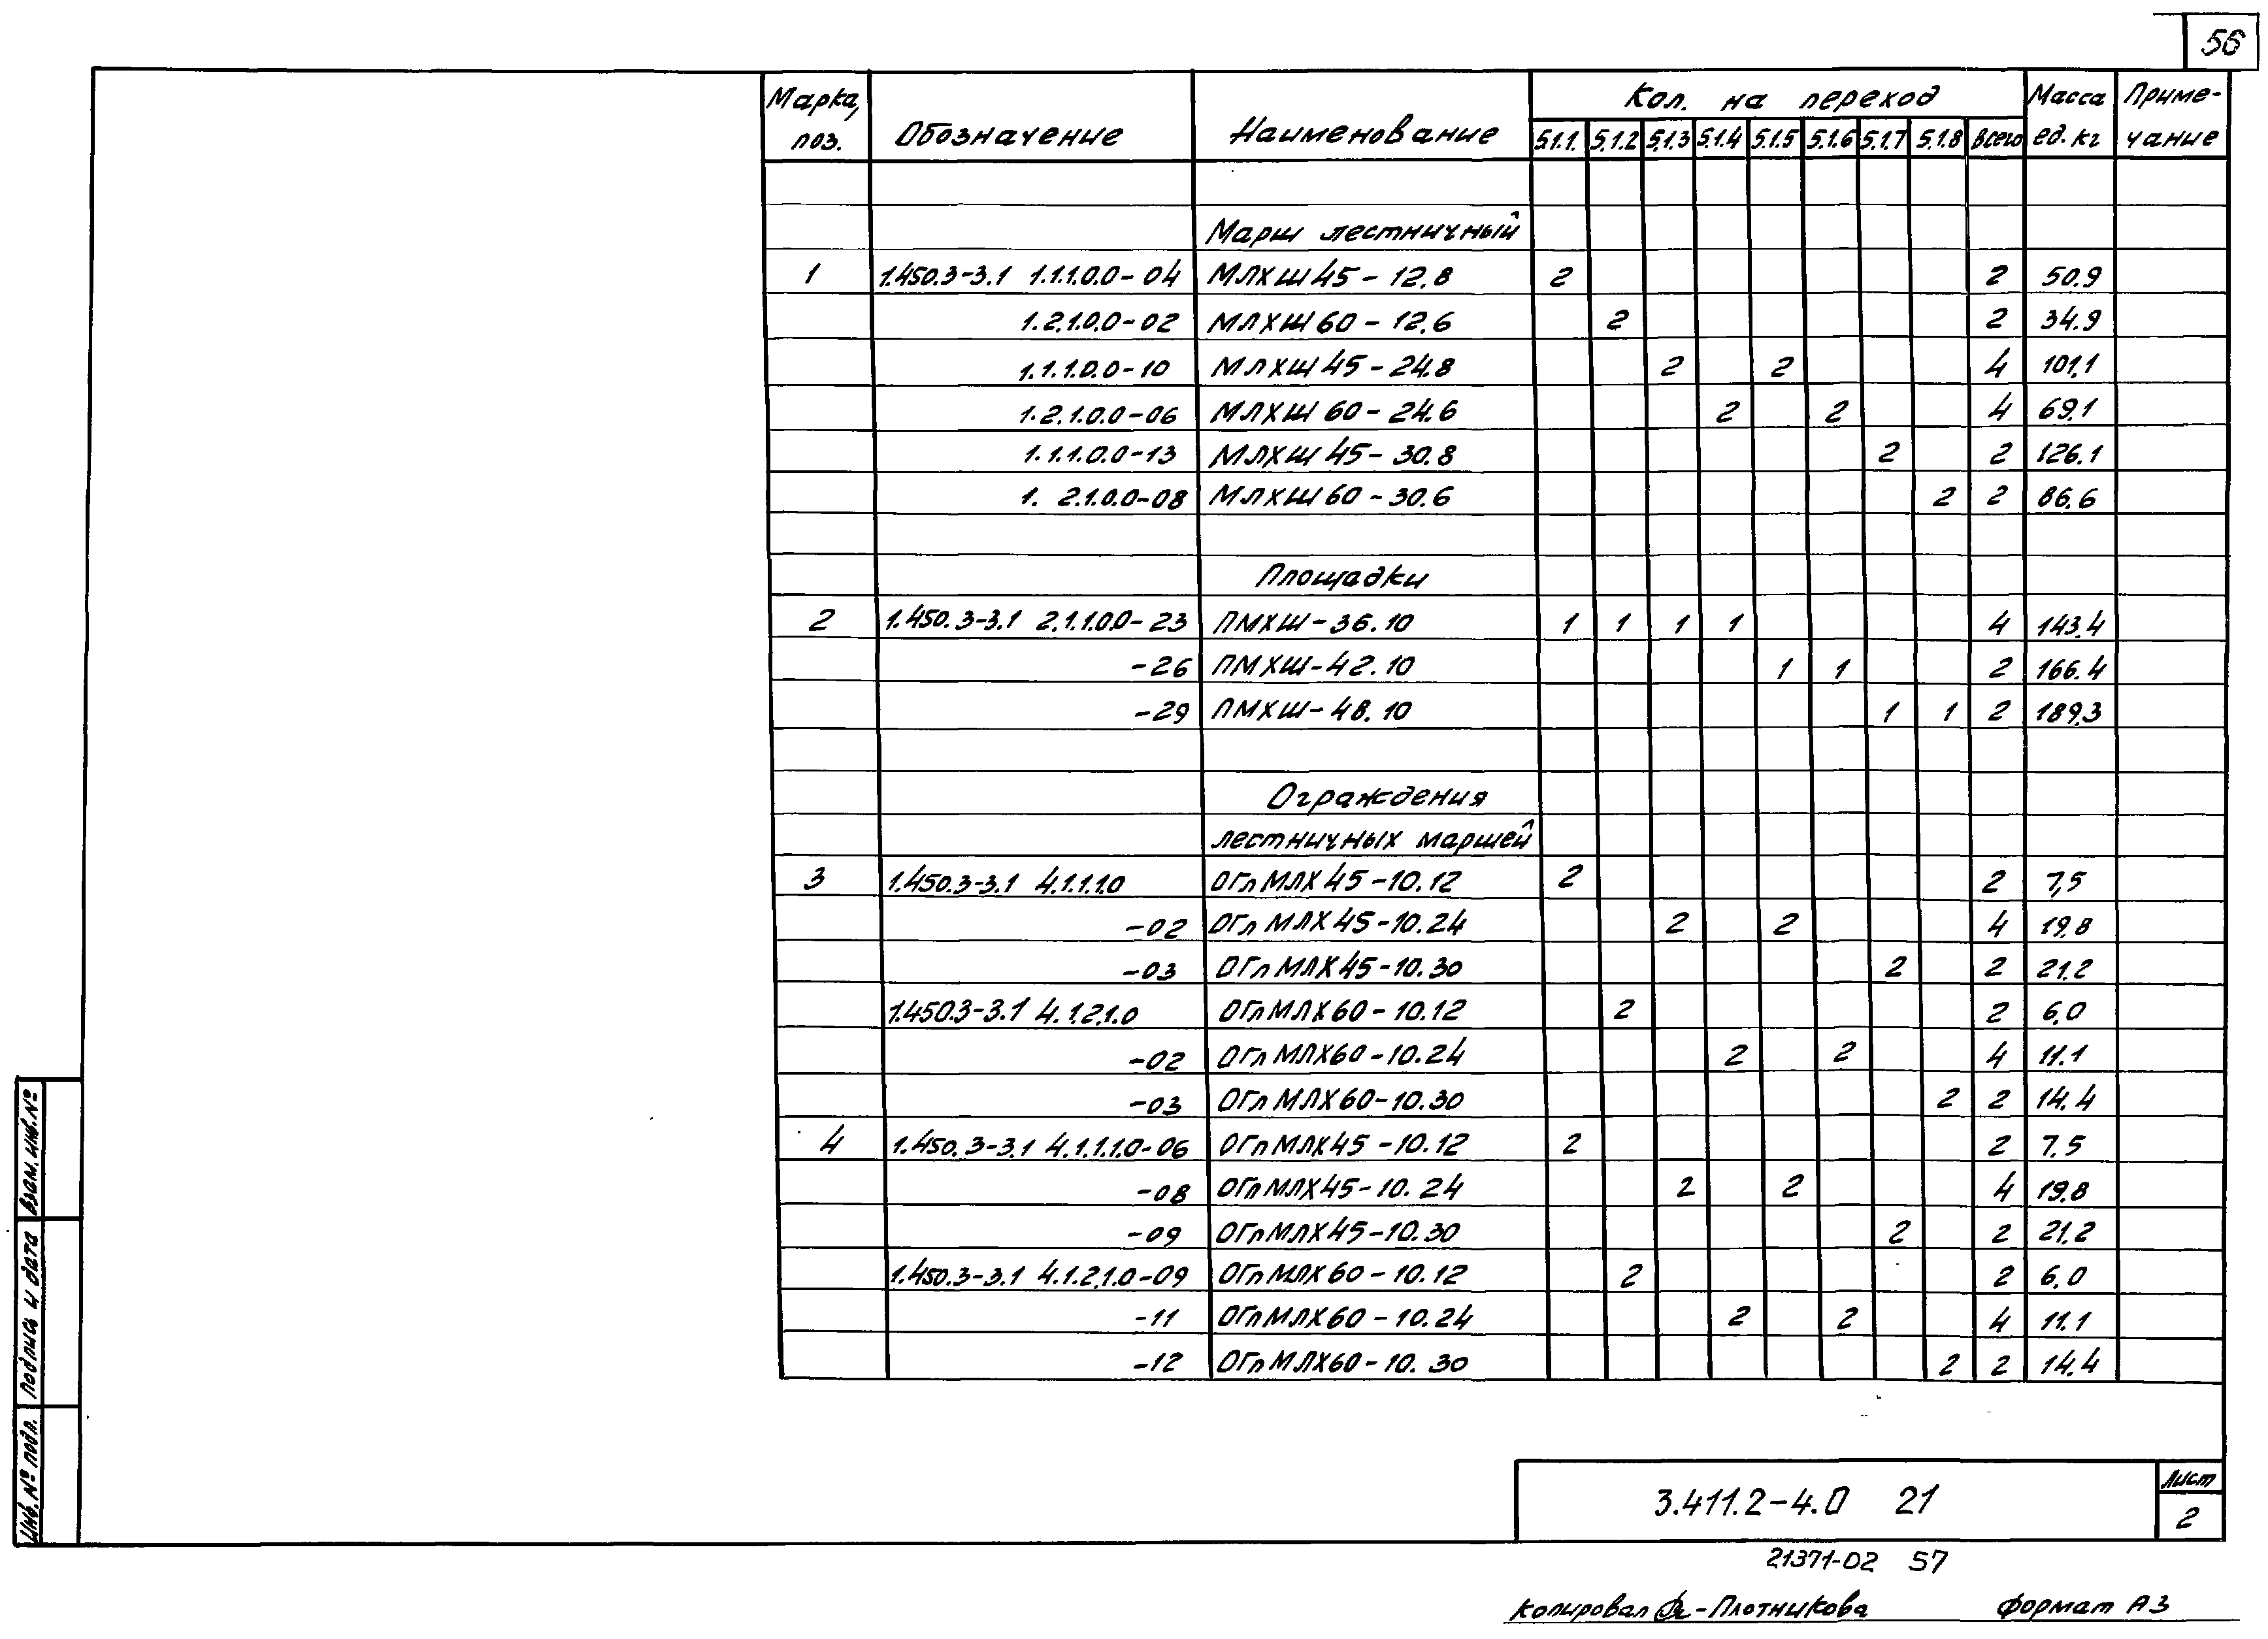 56
Марка, поз. Обозначение Наименование Кол. на переход Масса ед. кг Приме-чание
5.1.1. 5.1.2 5.1.3 5.1.4 5.1.5 5.1.6 5.1.7 5.1.8 всего
Марш лестничный
1 1.450.3-3.1 1.1.1.0.0-04 МЛХШ45-12.8 2 2 50.9
1.2.1.0.0-02 МЛХШ60-12.6 2 2 34.9
1.1.1.0.0-10 МЛХШ45-24.8 2 2 4 101,1
1.2.1.0.0-06 МЛХШ60-24.6 2 2 4 69.1
1.1.1.0.0-13 МЛХШ45-30.8 2 2 126.1
1. 2.1.0.0-08 МЛХШ60-30.6 2 2 86.6
Площадки
2 1.450.3-3.1 2.1.1.0.0-23 ПМХШ-36.10 1 1 1 1 4 143.4
-26 ПМХШ-42.10 1 1 2 166.4
-29 ПМХШ-48.10 1 1 2 189.3
Ограждения
лестничных маршей
3 1.450.3-3.1 4.1.1.1.0 ОГлМЛХ45-10.12 2 2 7,5
-02 ОГлМЛХ45-10.24 2 2 4 19.8
-03 ОГлМЛХ45-10.30 2 2 21.2
1.450.3-3.1 4.1.2.1.0 ОГлМЛХ60-10.12 2 2 6.0
-02 ОГлМЛХ60-10.24 2 2 4 11.1
-03 ОГлМЛХ60-10.30 2 2 14.4
4 1.450.3-3.1 4.1.1.1.0-06 ОГпМЛХ45-10.12 2 2 7.5
-08 ОГпМЛХ45-10.24 2 2 4 19.8
-09 ОГпМЛХ45-10.30 2 2 21.2
1.450.3-3.1 4.1.2.1.0-09 ОГпМЛХ60-10.12 2 2 6.0
-11 ОГпМЛХ60-10.24 2 2 4 11.1
-12 ОГпМЛХ60-10.30 2 2 14.4
Взам. инв. №
Подпись и дата
Инв. № подл.
3.411.2-4.0 21
Лист
2
21371-02 57
Копировал -Плотникова Формат А3